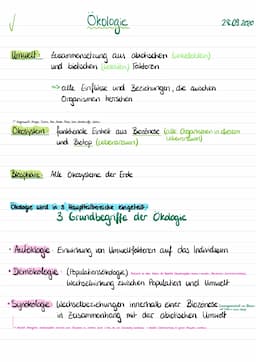 Ökologie 28.09.2020
Umwelt: Zusammensetzung aus abiotischen (unbelebten)
und biotischen (belebten) Faktoren
=> alle Einflüsse und Beziehungen, die zwischen
Organismen herrschen
Ökosystem: funktionale Einheit aus Biozönose (alle Organismen in diesem
und Biotop (Lebensraum) Lebensraum)
Biosphäre: Alle Ökosysteme der Erde
Ökologie wird in 3 Hauptteilbereiche eingeteilt:
3 Grundbegriffe der Ökologie
• Autökologie: Einwirkung von Umweltfaktoren auf das Individuum
• Demökologie: (Populationsökologie)
Wechselwirkung zwischen Population und Umwelt
• Synökologie: Wechselbeziehungen innerhalb einer Biozönose
in Zusammenhang mit der abiotischen Umwelt